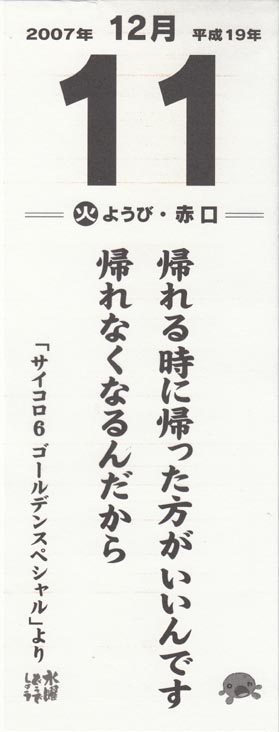 2007年 12月 平成19年
11
火 ようび・赤口
帰れる時に帰った方がいいんです
帰れなくなるんだから
「サイコロ6 ゴールデンスペシャル」より
水曜
どうでしょう